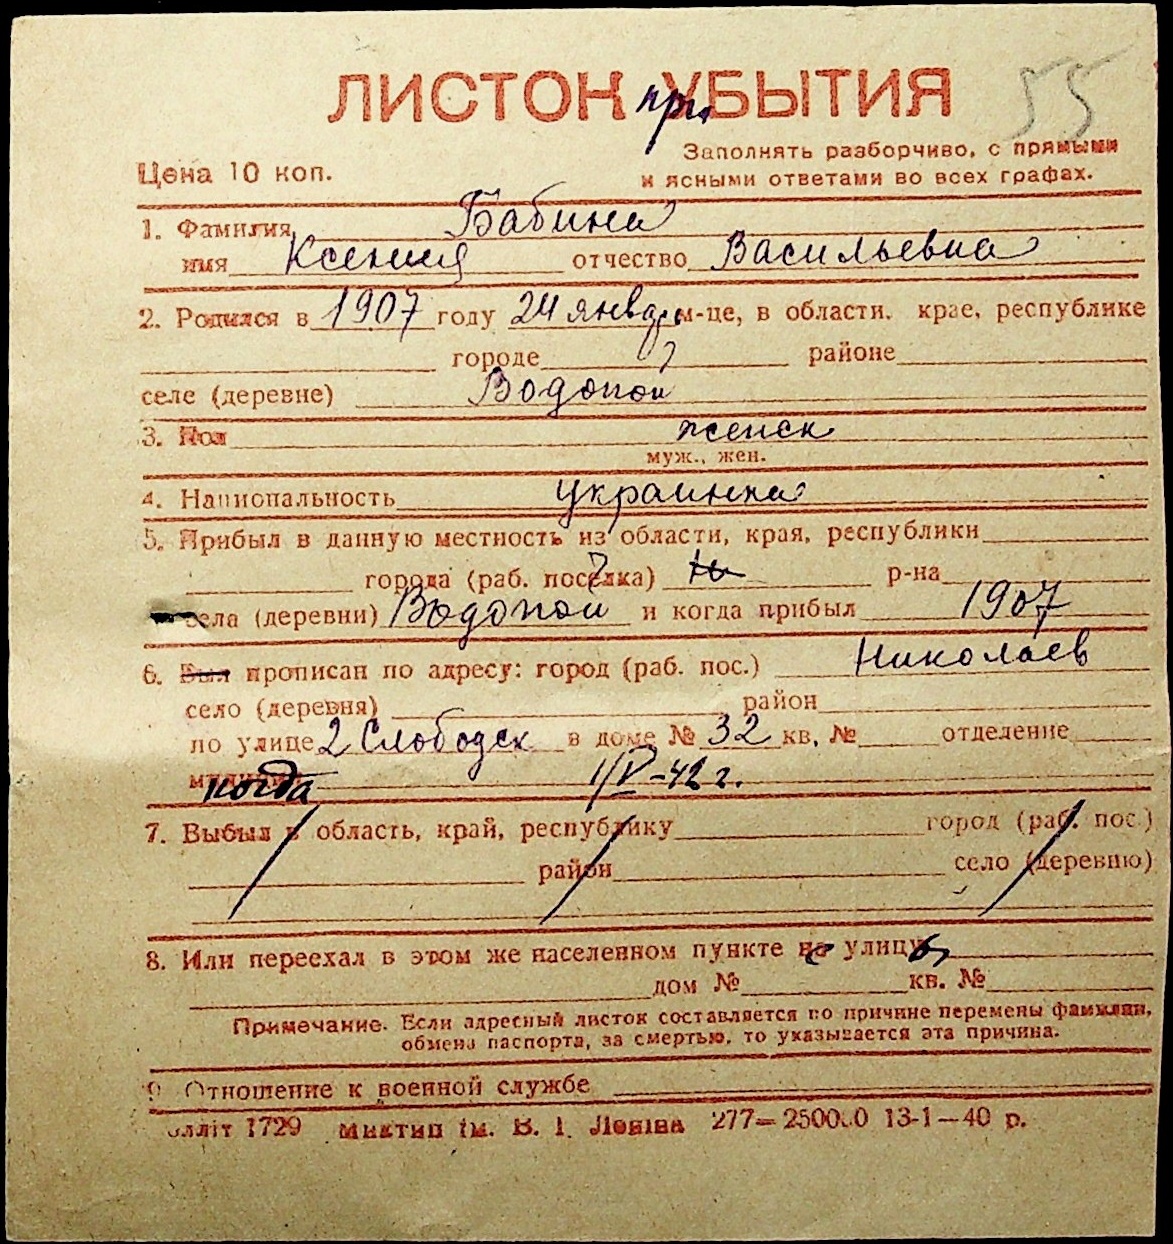 ЛИСТОН приУБЫТИЯ 55
Заполнять разборчиво, с прямыми
Цена 10 коп. и ясными ответами во всех графах.
1. Фамилия Бабина
имя Ксения отчество Васильевна
2. Родился в 1907 году 24 январ м-це, в области, крае, республике
городе районе
селе (деревне) Водопой
3. Пол женск
муж., жен.
4. Национальность украинка
5. Прибыл в данную местность из области, края, республики
города (раб. поселка) р-на
села (деревни) Водопой и когда прибыл 1907
6. Был прописан по адресу: город (раб. пос.) Николаев
село (деревня) район
по улице 2 Слободск в доме № 32 кв. № отделение
милиции когда 1/V-42 г.
7. Выбыл в область, край, республику город (раб. пос.)
район село (деревню)
8. Или переехал в этом же населенном пункте на улицу
дом № кв. №
Примечание. Если адресный листок составляется по причине перемены фамилии,
обмена паспорта, за смертью, то указывается эта причина.
9 Отношение к военной службе
ллліт 1729 Миктип ім. В. І. Леніна 277—250000 13-1—40 р.